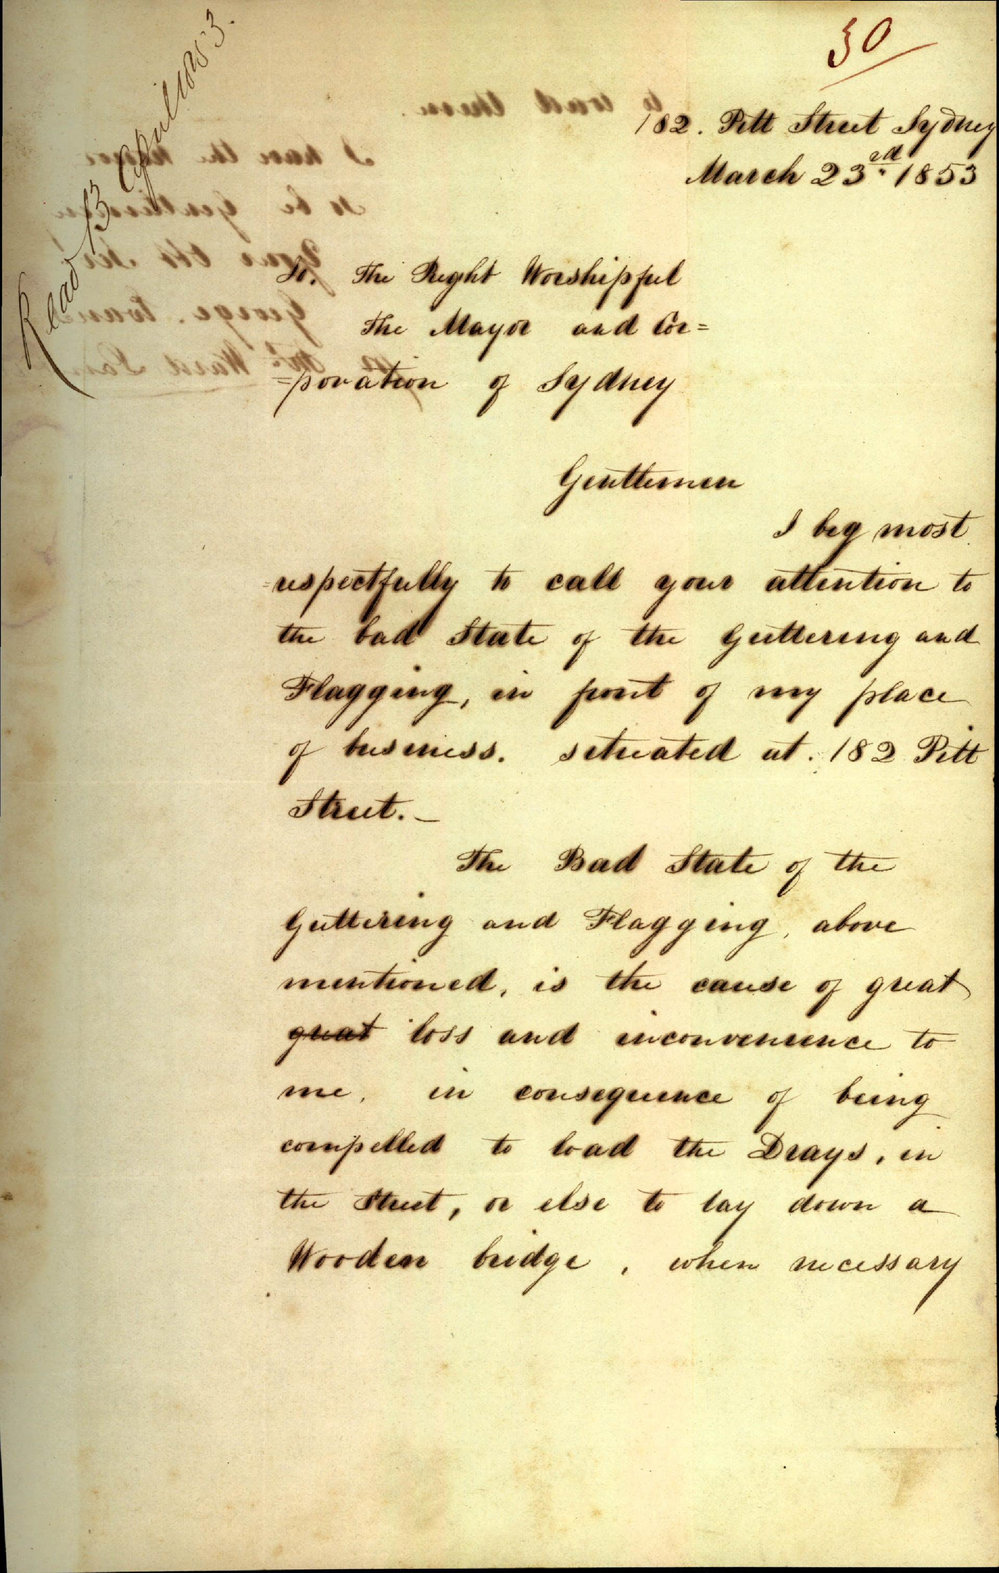 30
Read 13 April 1853.
182. Pitt Street Sydney
March 23rd. 1853
To. The Right Worshipful
The Mayor and Cor=
=poration of Sydney
Gentlemen
I beg most
=respectfully to call your attention to
the bad State of the Guttering and
Flagging, in front of my place
of business. situated at. 182 Pitt
Street.—
The Bad State of the
Guttering and Flagging, above
mentioned, is the cause of great
great loss and inconvenience to
me, in consequence of being
compelled to load the Drays, in
the Street, or else to lay down a
Wooden bridge, when necessary
to load them.
I have the honor
to be Gentlemen
Your Obt Ser
George.
Ward